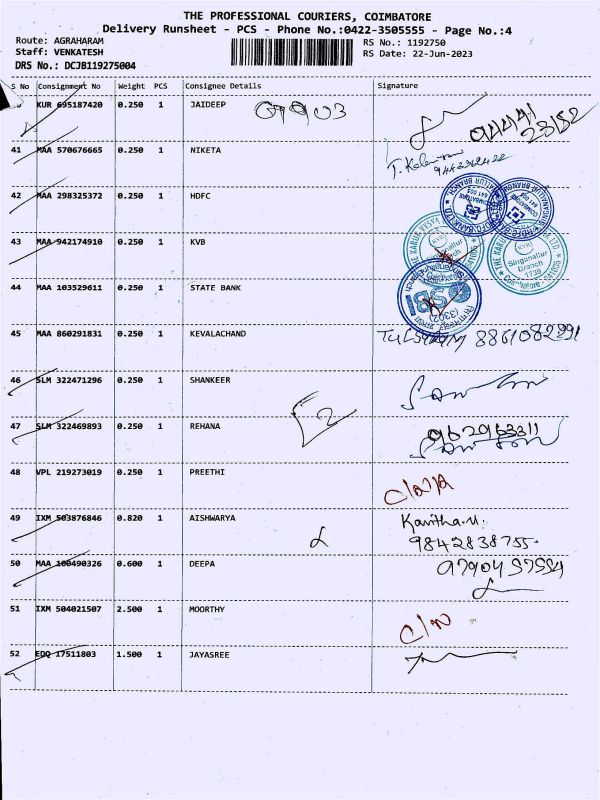 THE PROFESSIONAL COURIERS, COIMBATORE
Delivery Runsheet - PCS - Phone No.:0422-3505555 - Page No.:4
Route: AGRAHARAM
Staff: VENKATESH
DRS No.: DCJB119275004
RS No.: 1192750
RS Date: 22-Jun-2023
S No Consignment No Weight PCS Consignee Details Signature
KUR 695187420 0.250 1 JAIDEEP
41 MAA 570676665 0.250 1 NIKETA
42 MAA 298325372 0.250 1 HDFC
43 MAA 942174910 0.250 1 KVB
44 MAA 103529611 0.250 1 STATE BANK
45 MAA 860291831 0.250 1 KEVALACHAND 8861082991
46 SLM 322471296 0.250 1 SHANKEER
47 SLM 322469893 0.250 1 REHANA
48 VPL 219273019 0.250 1 PREETHI
49 IXM 503876846 0.820 1 AISHWARYA Kavitha.M.
9842838755
50 MAA 100490326 0.600 1 DEEPA
51 IXM 504021507 2.500 1 MOORTHY C/N
52 EDQ 17511803 1.500 1 JAYASREE